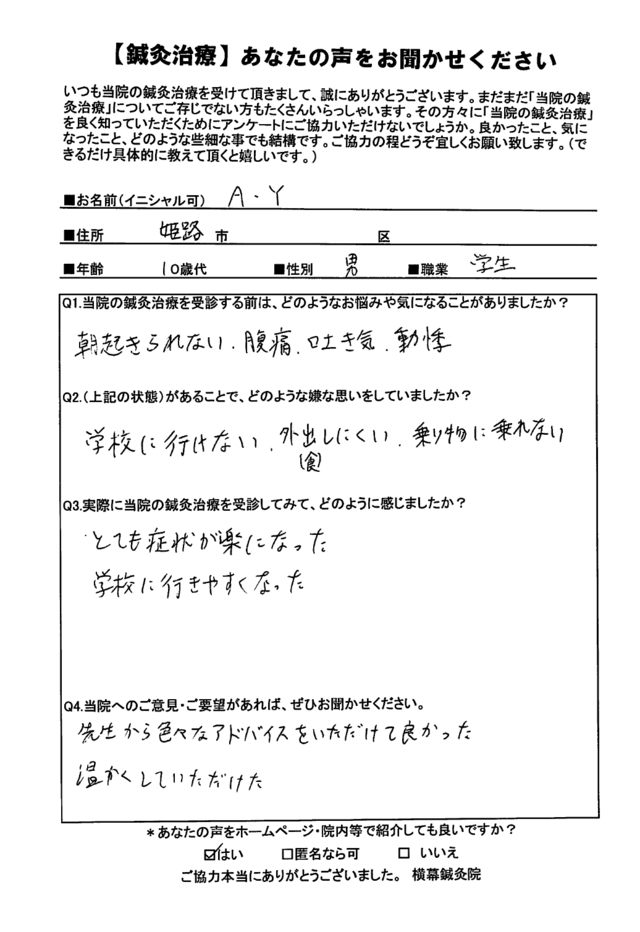 【鍼灸治療】あなたの声をお聞かせください
いつも当院の鍼灸治療を受けて頂きまして、誠にありがとうございます。まだまだ「当院の鍼
灸治療」についてご存じでない方もたくさんいらっしゃいます。その方々に「当院の鍼灸治療」
を良く知っていただくためにアンケートにご協力いただけないでしょうか。良かったこと、気に
なったこと、どのような些細な事でも結構です。ご協力の程どうぞ宜しくお願い致します。（で
きるだけ具体的に教えて頂くと嬉しいです。）
■お名前（イニシャル可） A・Y
■住所 姫路 市 区
■年齢 10歳代 ■性別 男 ■職業 学生
Q1.当院の鍼灸治療を受診する前は、どのようなお悩みや気になることがありましたか？
朝起きられない、腹痛、吐き気、動悸
Q2.（上記の状態）があることで、どのような嫌な思いをしていましたか？
学校に行けない、外出しにくい、乗り物に乗れない
（食）
Q3.実際に当院の鍼灸治療を受診してみて、どのように感じましたか？
とても症状が楽になった
学校に行きやすくなった
Q4.当院へのご意見・ご要望があれば、ぜひお聞かせください。
先生から色々なアドバイスをいただけて良かった
温かくしていただけた
＊あなたの声をホームページ・院内等で紹介しても良いですか？
☑はい □匿名なら可 □ いいえ
ご協力本当にありがとうございました。 横幕鍼灸院